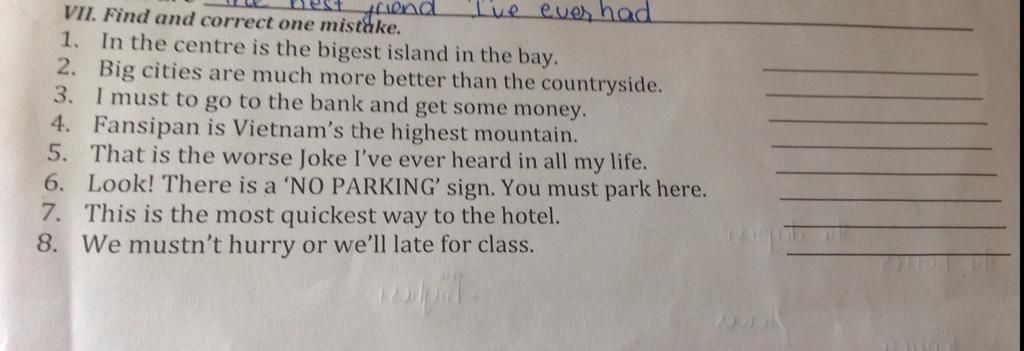 best friend I've ever had
VII. Find and correct one mistake.
1. In the centre is the bigest island in the bay.
2. Big cities are much more better than the countryside.
3. I must to go to the bank and get some money.
4. Fansipan is Vietnam's the highest mountain.
5. That is the worse Joke I've ever heard in all my life.
6. Look! There is a 'NO PARKING' sign. You must park here.
7. This is the most quickest way to the hotel.
8. We mustn't hurry or we'll late for class.